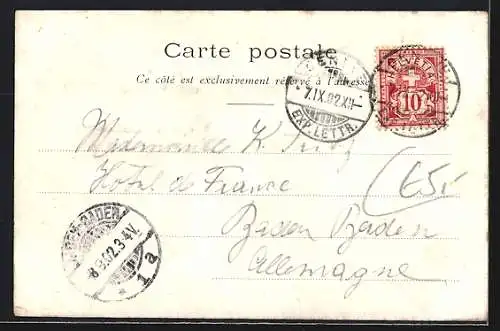 Carte postale
Ce côté est exclusivement réservé à l'adresse
7.IX.02.XII
EXP. LETTR.
HELVETIA
10
Mademoiselle K.
Hôtel de France
65
Baden Baden
Allemagne
BADEN-BADEN
8.9.02.3-4V.
* 1 a